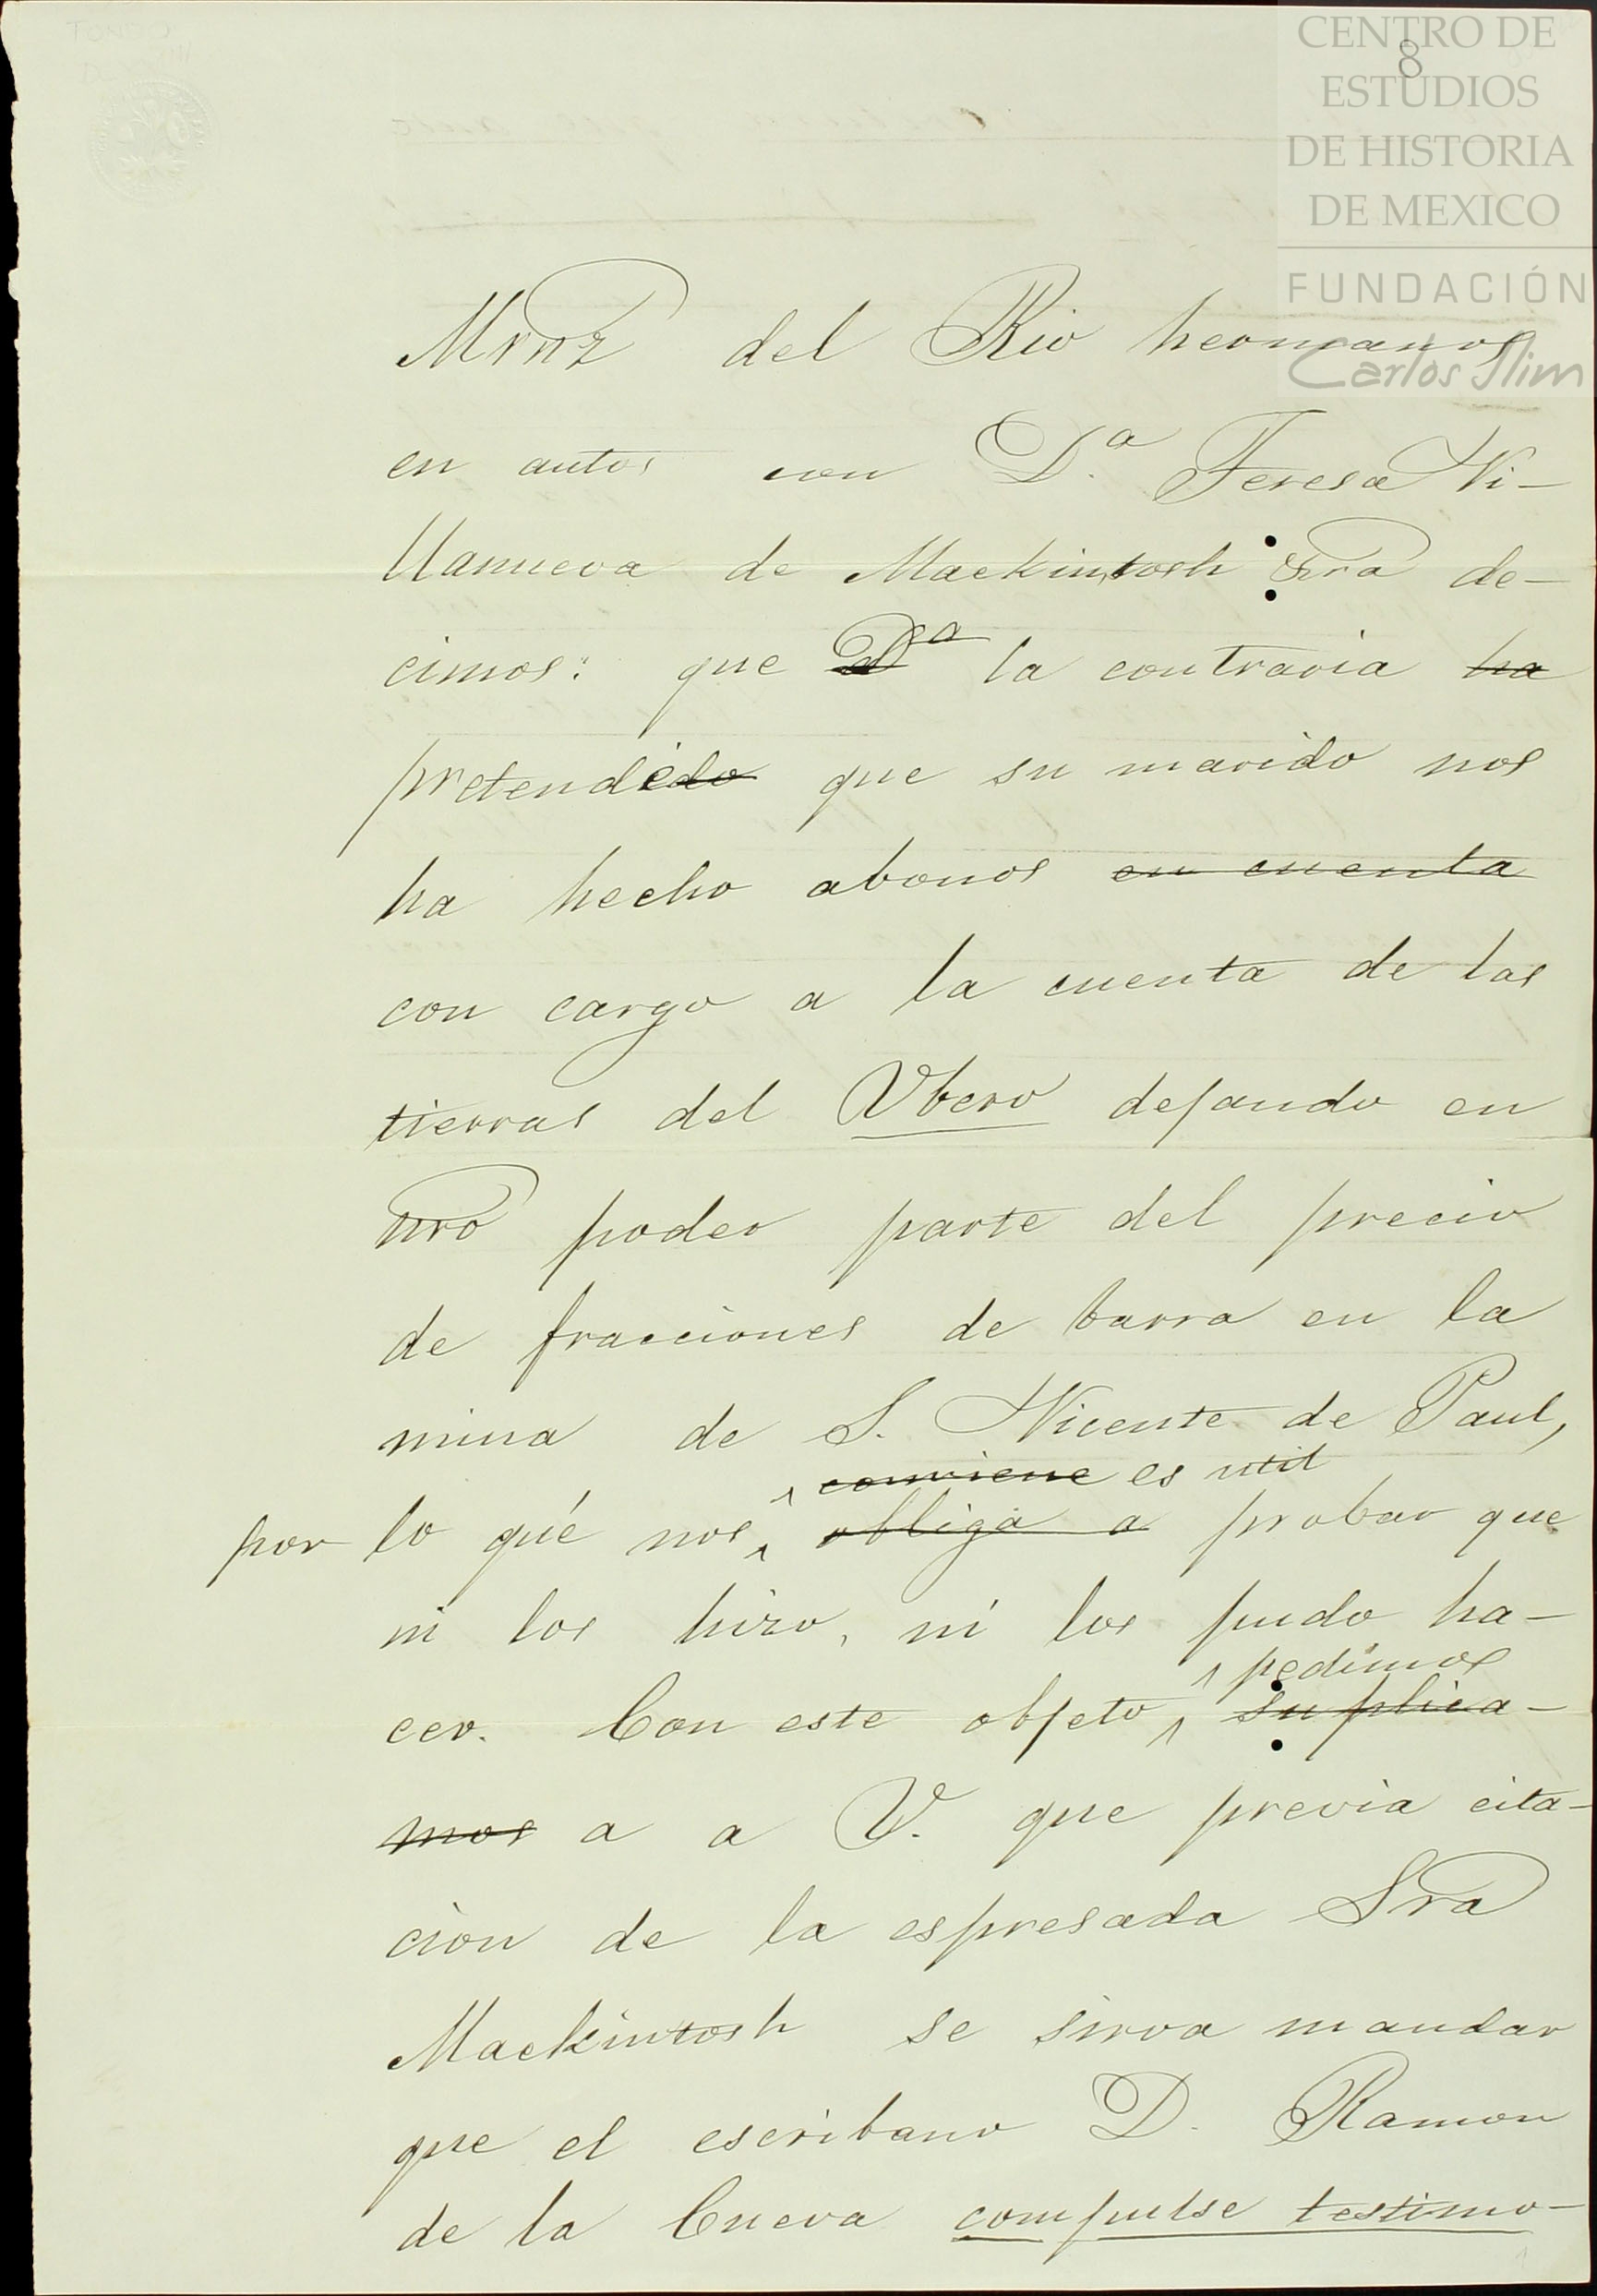 CENTRO DE
ESTUDIOS
DE HISTORIA
DE MEXICO
FUNDACIÓN
Carlos Slim
8
Mrnz del Rio hermanos
en autos con D.ª Teresa Vi-
llanueva de Mackintosh Sra de-
cimos: que Dª la contraria ha
pretendido que su marido nos
ha hecho abonos en cuenta
con cargo a la cuenta de las
tierras del Ubero dejando en
nro poder parte del precio
de fracciones de barra en la
mina de S. Vicente de Paul,
conviene es util
por lo qué nos obliga a probar que
ni los hizo, ni los pudo ha-
pedimos
cer. Con este objeto, suplica-
mos a a V. que previa cita-
cion de la espresada Sra
Mackintosh se sirva mandar
que el escribano D. Ramon
de la Cueva compulse testimo-